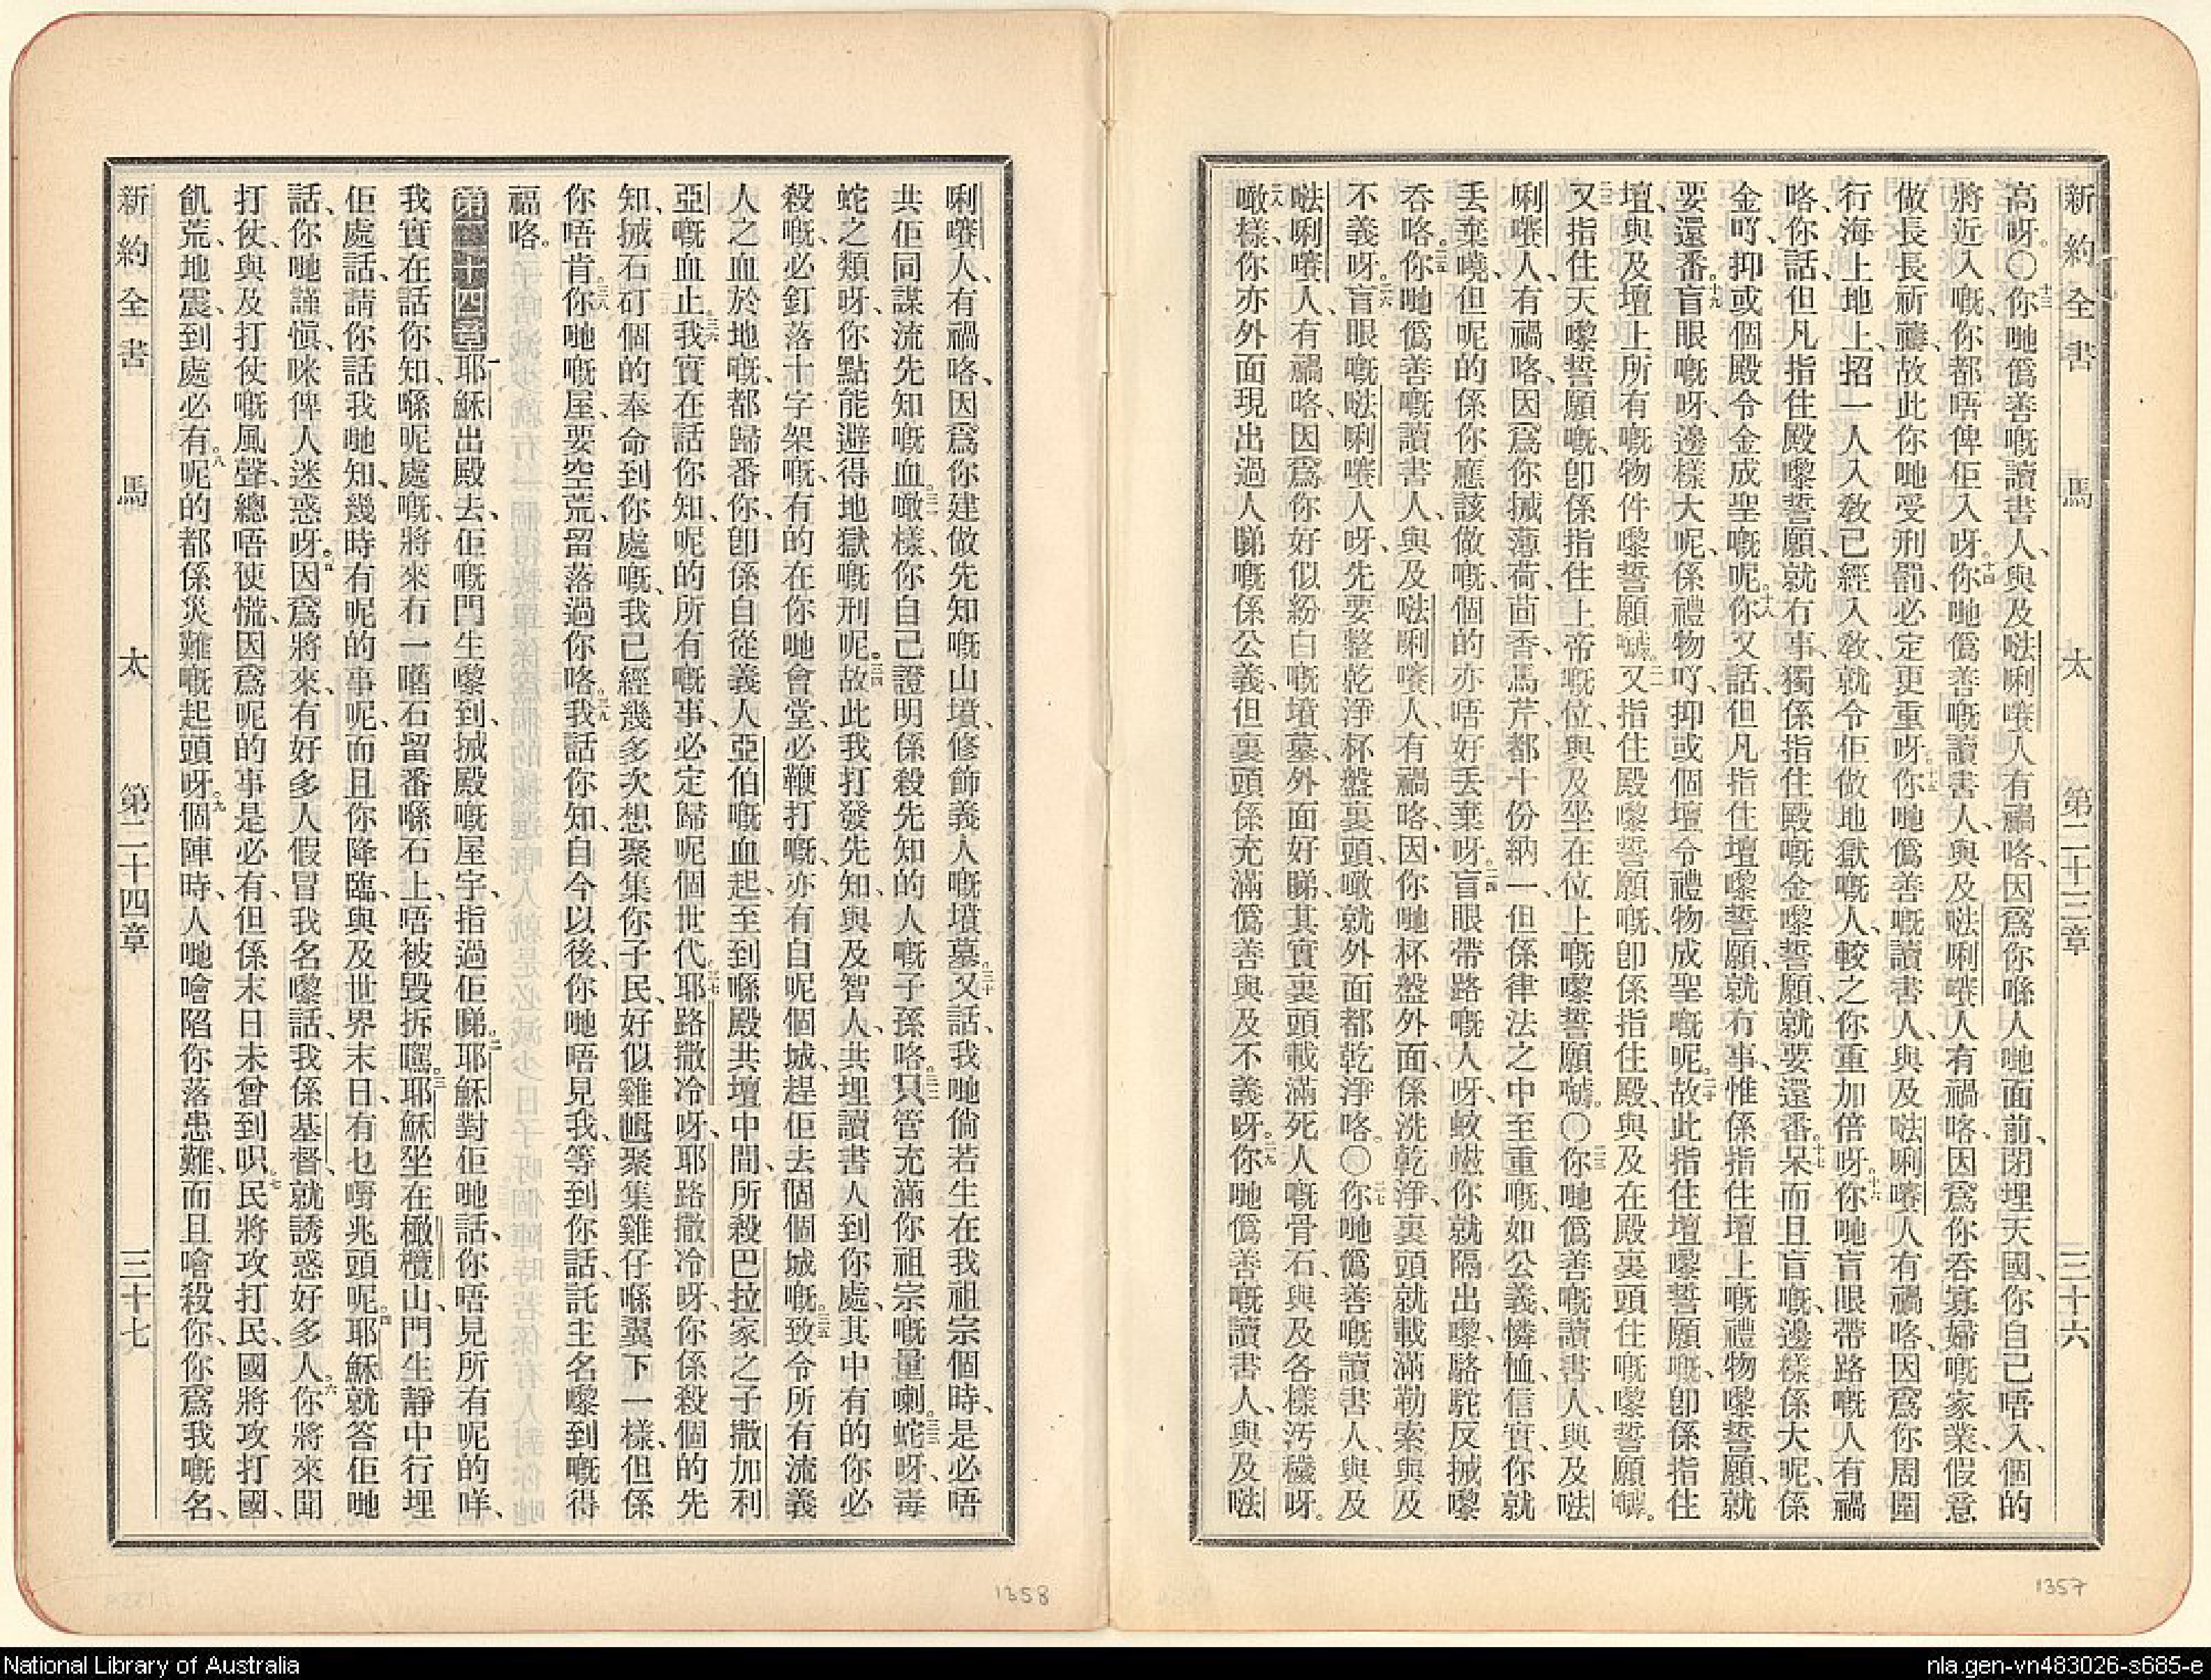 新約全書 馬 太 第二十三章 三十六
高呀。〇十三你哋僞善嘅讀書人、與及𠵽唎嚌人有禍咯、因爲你喺人哋面前、閉埋天國、你自己唔入、個的
將近入嘅、你都唔俾佢入呀。十四你哋僞善嘅讀書人、與及𠵽唎嚌人有禍咯、因爲你吞寡婦嘅家業、假意
做長長祈禱、故此你哋受刑罰、必定更重呀。十五你哋僞善嘅讀書人、與及𠵽唎嚌人有禍咯、因爲你周圍
行海上地上、招一人入教、已經入教、就令佢做地獄嘅人、較之你重加倍呀。十六你哋盲眼帶路嘅人有禍
咯、你話、但凡指住殿嚟誓願、就冇事、獨係指住殿嘅金嚟誓願、就要還番。十七呆而且盲嘅、邊樣係大呢、係
金吖、抑或個殿令金成聖嘅呢。十八你又話、但凡指住壇嚟誓願、就冇事、惟係指住壇上嘅禮物嚟誓願、就
要還番。十九盲眼嘅呀、邊樣大呢、係禮物吖、抑或個壇令禮物成聖嘅呢。二十故此指住壇嚟誓願嘅、卽係指住
壇、與及壇上所有嘅物件嚟誓願嘛。二一又指住殿嚟誓願嘅、卽係指住殿、與及在殿裏頭住嘅嚟誓願嘛。
二二又指住天嚟誓願嘅、卽係指住上帝嘅位、與及坐在位上嘅嚟誓願嘛。〇二三你哋僞善嘅讀書人、與及𠵽
唎嚌人、有禍咯、因爲你搣薄荷、茴香、馬芹、都十份納一、但係律法之中至重嘅、如公義、憐恤、信實、你就
丟棄嘵、但呢的係你應該做嘅、個的亦唔好丟棄呀。二四盲眼帶路嘅人呀、蚊𧓉你就隔出嚟、駱駝反搣嚟
吞咯。二五你哋僞善嘅讀書人、與及𠵽唎嚌人、有禍咯、因你哋杯盤外面、係洗乾淨、裏頭就載滿勒索與及
不義呀。二六盲眼嘅𠵽唎嚌人呀、先要整乾淨杯盤裏頭、噉就外面都乾淨咯。〇二七你哋僞善嘅讀書人、與及
𠵽唎嚌人有禍咯、因爲你好似紛白嘅墳墓、外面好睇、其實裏頭載滿死人嘅骨石、與及各樣汚穢呀。
二八噉樣、你亦外面現出過人睇嘅係公義、但裏頭係充滿僞善與及不義呀。二九你哋僞善嘅讀書人、與及𠵽
1357
唎嚌人、有禍咯、因爲你建做先知嘅山墳、修飾義人嘅墳墓。三十又話、我哋倘若生在我祖宗個時、是必唔
共佢同謀流先知嘅血。三一噉樣、你自己證明係殺先知的人嘅子孫咯。三二只管充滿你祖宗嘅量喇。三三蛇呀、毒
蛇之類呀、你點能避得地獄嘅刑呢。三四故此我打發先知、與及智人、共埋讀書人到你處、其中有的你必
殺嘅、必釘落十字架嘅、有的在你哋會堂、必鞭打嘅、亦有自呢個城、趕佢去個個城嘅。三五致令所有流義
人之血於地嘅、都歸番你、卽係自從義人亞伯嘅血起、至到喺殿共壇中間、所殺巴拉家之子撒加利
亞嘅血止。三六我實在話你知、呢的所有嘅事、必定歸呢個世代。三七耶路撒冷呀、耶路撒冷呀、你係殺個的先
知、搣石矴個的奉命到你處嘅、我已經幾多次想聚集你子民、好似雞𡥧聚集雞仔喺翼下一樣、但係
你唔肯。三八你哋嘅屋、要空荒、留落過你咯。三九我話你知、自今以後、你哋唔見我、等到你話、託主名嚟到嘅得
福咯。
第二十四章一耶穌出殿去、佢嘅門生嚟到、搣殿嘅屋宇、指過佢睇。二耶穌對佢哋話、你唔見所有呢的咩、
我實在話你知、喺呢處嘅、將來冇一嚿石留番喺石上、唔被毀拆嘿。三耶穌坐在橄欖山、門生靜中行埋
佢處話、請你話我哋知、幾時有呢的事呢、而且你降臨、與及世界末日、有乜嘢兆頭呢。四耶穌就答佢哋
話、你哋謹愼、咪俾人迷惑呀。五因爲將來、有好多人假冒我名嚟話、我係基督、就誘惑好多人。六你將來聞
打仗、與及打仗嘅風聲、總唔使慌、因爲呢的事是必有、但係末日未曾到呮。七民將攻打民、國將攻打國、
飢荒、地震、到處必有。八呢的都係災難嘅起頭呀。九個陣時、人哋噲陷你落患難、而且噲殺你、你爲我嘅名、
新約全書 馬 太 第二十四章 三十七
1358
National Library of Australia
nla.gen-vn483026-s685-e